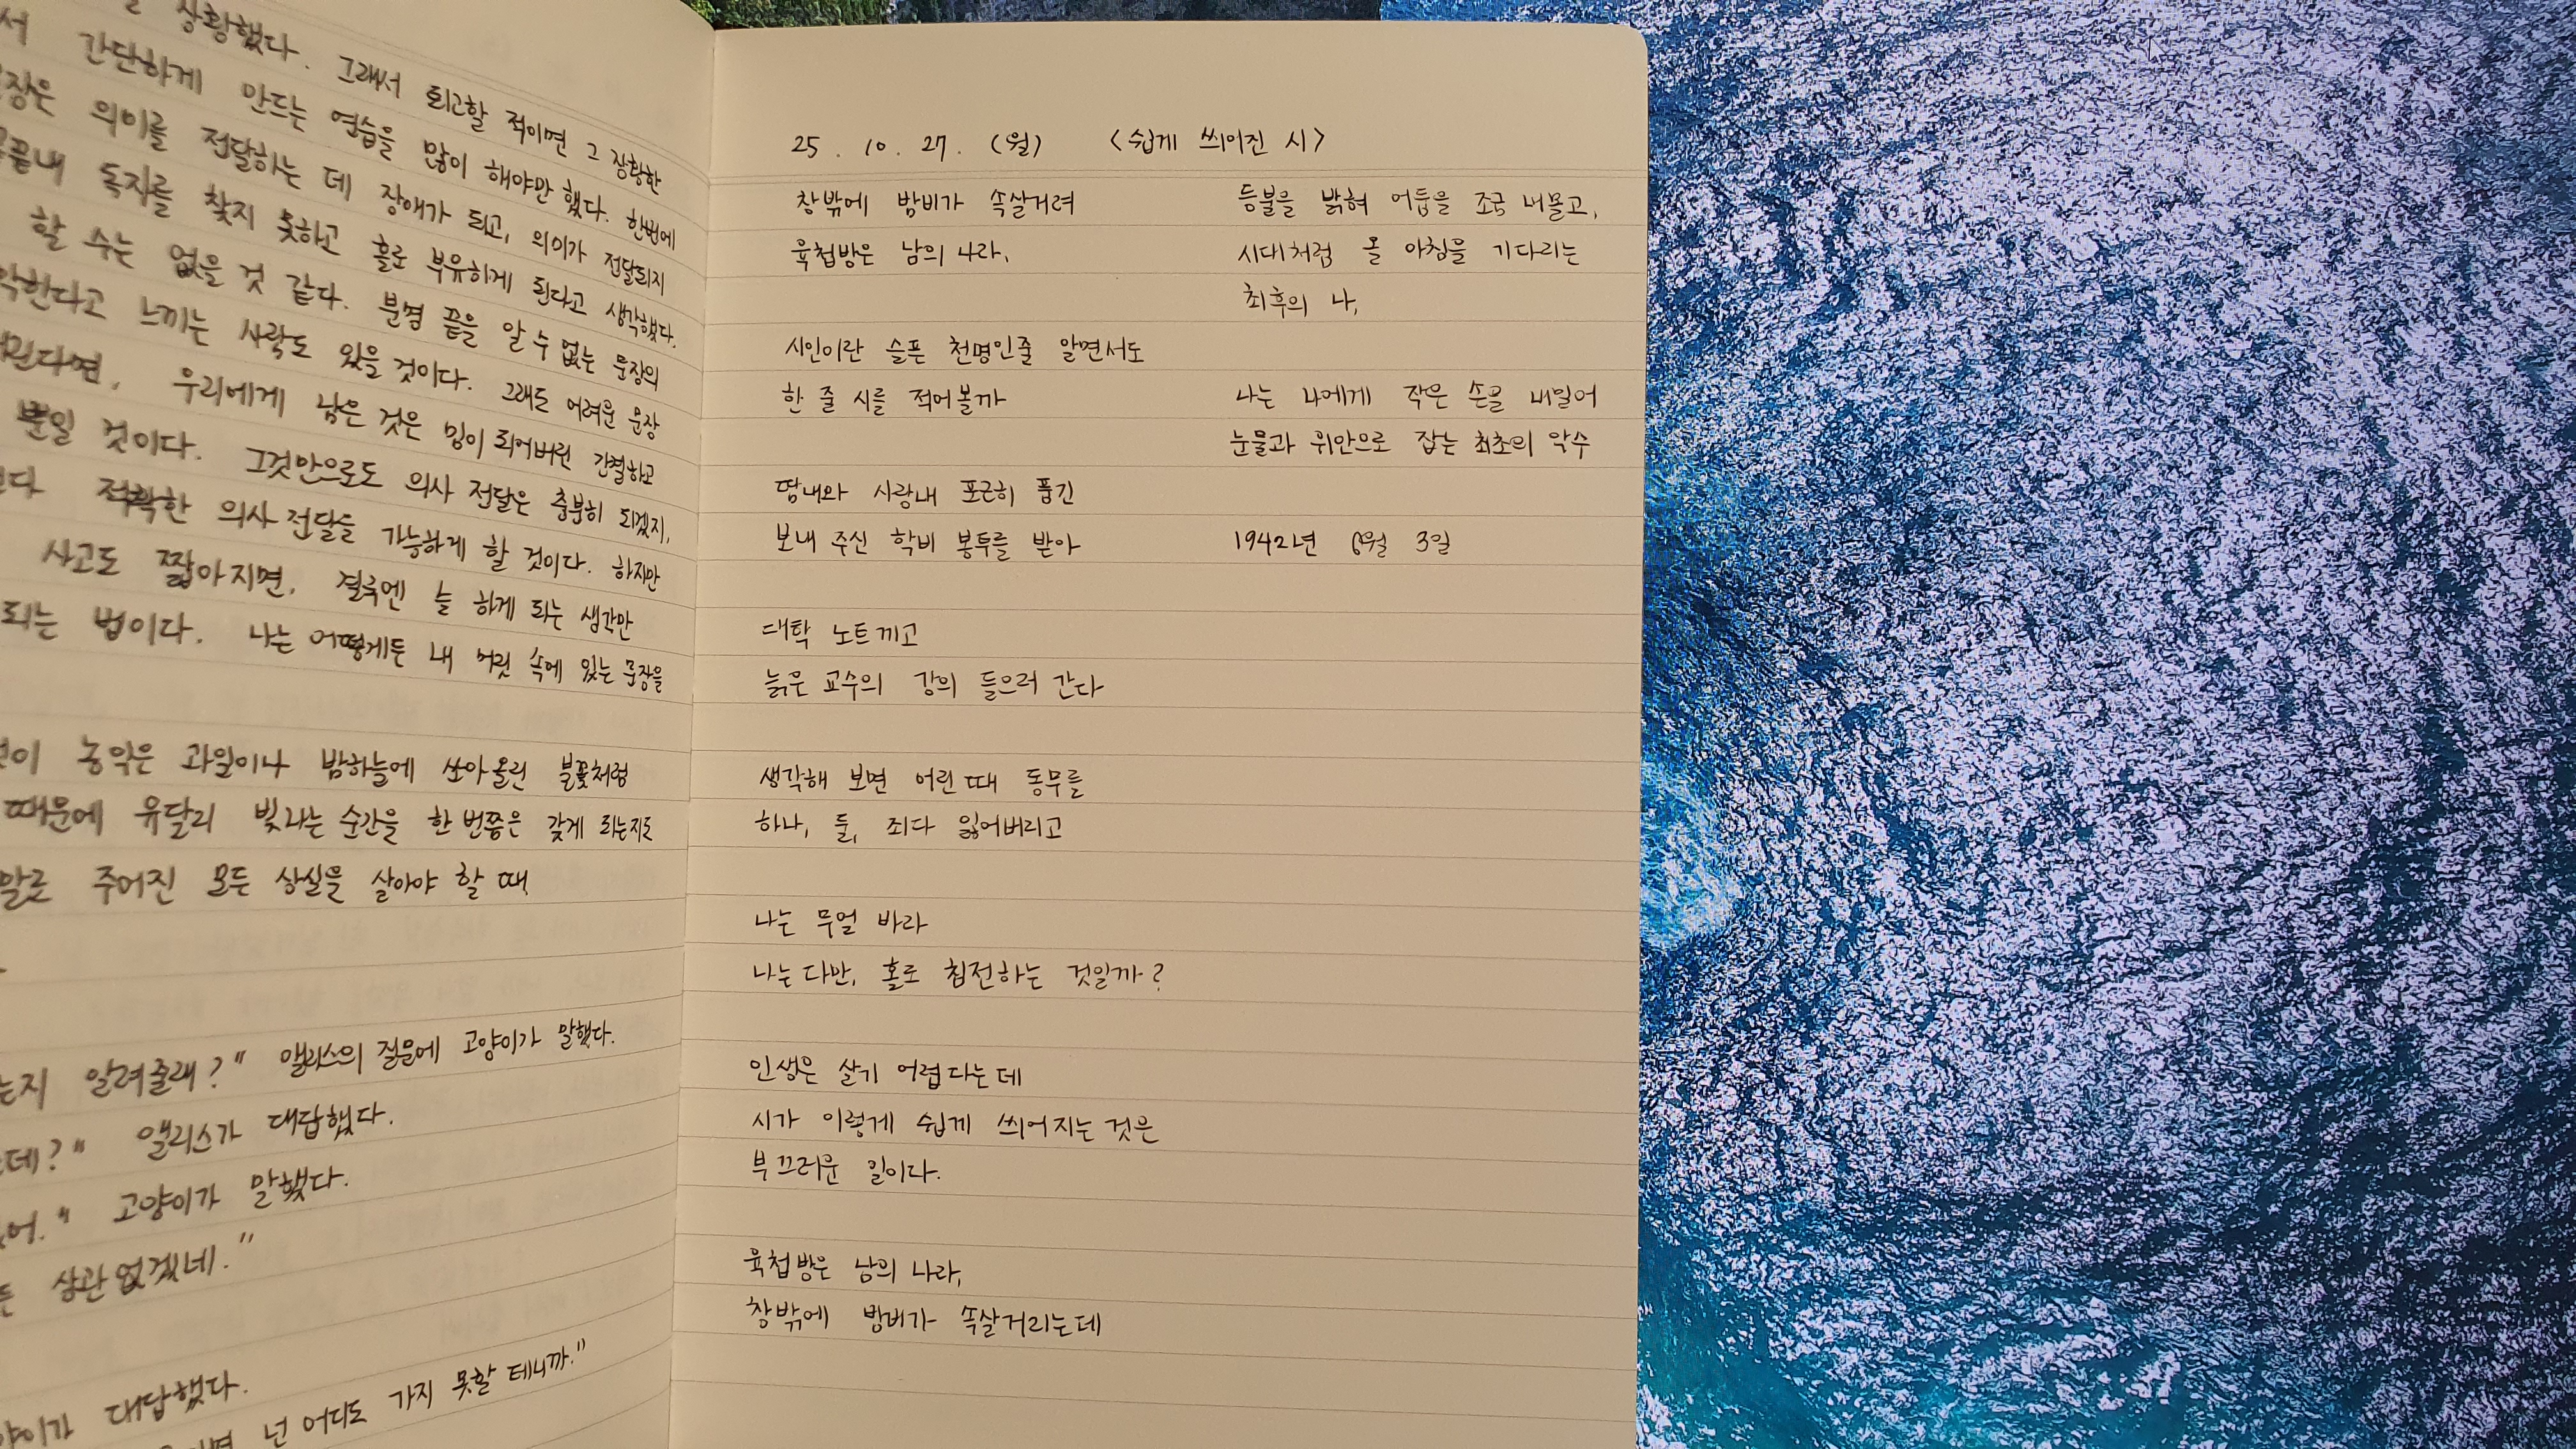 상황했다. 그래서 퇴고할 적이면 그 장황한
서 간단하게 만드는 연습을 많이 해야만 했다. 한번에
장은 의미를 전달하는 데 장애가 되고, 의미가 전달되지
끝내 독자를 찾지 못하고 홀로 부유하게 된다고 생각했다.
할 수는 없을 것 같다. 분명 끝을 알 수 없는 문장의
악한다고 느끼는 사람도 있을 것이다. 그래도 어려운 문장
된다면, 우리에게 남은 것은 밈이 되어버린 간결하고
뿐일 것이다. 그것만으로도 의사 전달은 충분히 되겠지,
적확한 의사 전달을 가능하게 할 것이다. 하지만
사고도 짧아지면, 결국엔 늘 하게 되는 생각만
되는 법이다. 나는 어떻게든 내 머릿 속에 있는 문장을
이 농익은 과일이나 밤하늘에 쏘아올린 불꽃처럼
때문에 유달리 빛나는 순간을 한 번쯤은 갖게 되는지도
말로 주어진 모든 상실을 살아야 할 때
는지 알려줄래?" 앨리스의 질문에 고양이가 말했다.
데?" 앨리스가 대답했다.
어." 고양이가 말했다.
든 상관 없겠네."
양이가 대답했다.
넌 어디도 가지 못할 테니까."
25. 10. 27. (월) <쉽게 씌어진 시>
창밖에 밤비가 속살거려
육첩방은 남의 나라,
시인이란 슬픈 천명인줄 알면서도
한 줄 시를 적어볼까
땀내와 사랑내 포근히 품긴
보내 주신 학비 봉투를 받아
대학 노트 끼고
늙은 교수의 강의 들으러 간다
생각해 보면 어린 때 동무를
하나, 둘, 죄다 잃어버리고
나는 무얼 바라
나는 다만, 홀로 침전하는 것일까?
인생은 살기 어렵다는데
시가 이렇게 쉽게 씌어지는 것은
부끄러운 일이다.
육첩방은 남의 나라,
창밖에 밤비가 속살거리는데
등불을 밝혀 어둠을 조금 내몰고,
시대처럼 올 아침을 기다리는
최후의 나,
나는 나에게 작은 손을 내밀어
눈물과 위안으로 잡는 최초의 악수
1942년 6월 3일